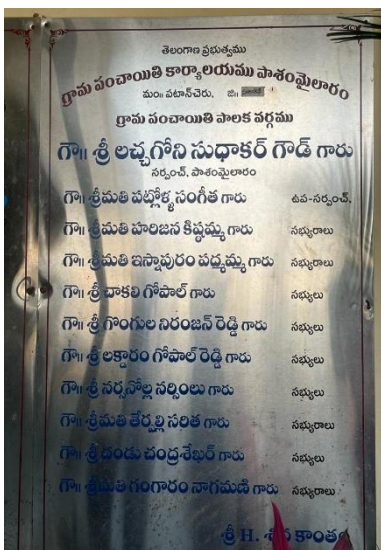 తెలంగాణ ప్రభుత్వము
గ్రామ పంచాయితి కార్యాలయము పాశంమైలారం
మం॥ పటాన్‌చెరు, జి॥
గ్రామ పంచాయితి పాలక వర్గము
గౌ॥ శ్రీ లచ్చగోని సుధాకర్ గౌడ్ గారు
సర్పంచ్, పాశంమైలారం
గౌ॥ శ్రీమతి పట్లోళ్ళ సంగీత గారు ఉప-సర్పంచ్,
గౌ॥ శ్రీమతి హరిజన కిష్టమ్మ గారు సభ్యురాలు
గౌ॥ శ్రీమతి ఇస్నాపురం పద్మమ్మ గారు సభ్యురాలు
గౌ॥ శ్రీ చాకలి గోపాల్ గారు సభ్యులు
గౌ॥ శ్రీ గొంగుల నిరంజన్ రెడ్డి గారు సభ్యులు
గౌ॥ శ్రీ లక్డారం గోపాల్ రెడ్డి గారు సభ్యులు
గౌ॥ శ్రీ నర్సనోల్ల నర్సింలు గారు సభ్యులు
గౌ॥ శ్రీమతి తేర్పల్లి సరిత గారు సభ్యురాలు
గౌ॥ శ్రీ దండు చంద్రశేఖర్ గారు సభ్యులు
గౌ॥ శ్రీమతి గంగారం నాగమణి గారు సభ్యురాలు
శ్రీ H.